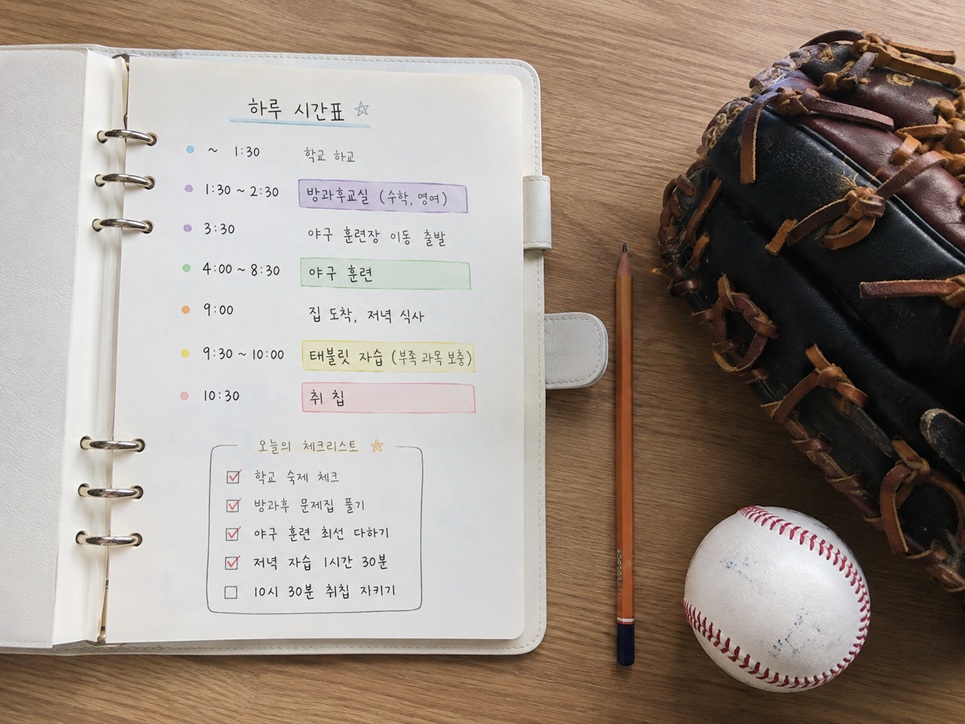 하루 시간표
~ 1:30 학교 하교
1:30 ~ 2:30 방과후교실 (수학, 영여)
3:30 야구 훈련장 이동 출발
4:00 ~ 8:30 야구 훈련
9:00 집 도착, 저녁 식사
9:30 ~ 10:00 태블릿 자습 (부족 과목 보충)
10:30 취 침
오늘의 체크리스트
학교 숙제 체크
방과후 문제집 풀기
야구 훈련 최선 다하기
저녁 자습 1시간 30분
10시 30분 취침 지키기